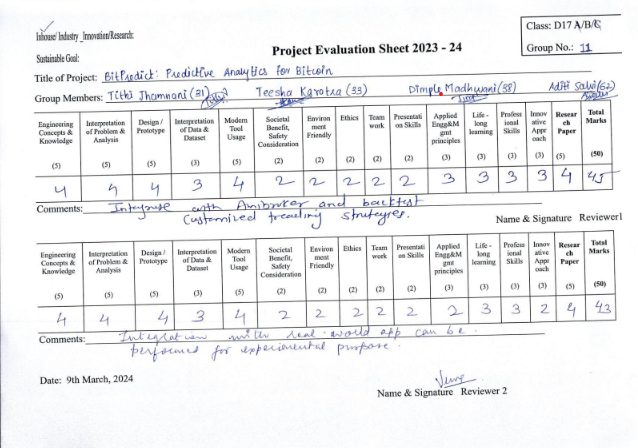 Inhouse/ Industry _Innovation/Research:
Class: D17 A/B/C
Sustainable Goal:
Project Evaluation Sheet 2023 - 24
Group No.: 11
Title of Project: BitPredict: Predictive Analytics for Bitcoin
Group Members: Tithi Jhamnani (31) Teesha Karotra (33) Dimple Madhwani (38) Aditi Salvi (62)
Engineering Concepts & Knowledge Interpretation of Problem & Analysis Design / Prototype Interpretation of Data & Dataset Modern Tool Usage Societal Benefit, Safety Consideration Environ ment Friendly Ethics Team work Presentati on Skills Applied Engg&M gmt principles Life - long learning Profess ional Skills Innov ative Appr oach Resear ch Paper Total Marks
(5) (5) (5) (3) (5) (2) (2) (2) (2) (2) (3) (3) (3) (3) (5) (50)
4 4 4 3 4 2 2 2 2 2 3 3 3 3 4 45
Comments: with and backtest
Customized trading strategies.
Name & Signature Reviewer1
Engineering Concepts & Knowledge Interpretation of Problem & Analysis Design / Prototype Interpretation of Data & Dataset Modern Tool Usage Societal Benefit, Safety Consideration Environ ment Friendly Ethics Team work Presentati on Skills Applied Engg&M gmt principles Life - long learning Profess ional Skills Innov ative Appr oach Resear ch Paper Total Marks
(5) (5) (5) (3) (5) (2) (2) (2) (2) (2) (3) (3) (3) (3) (5) (50)
4 4 4 3 4 2 2 2 2 2 2 3 3 2 4 43
Comments: Integration with real-world app can be.
performed for experimental purpose.
Date: 9th March, 2024
Name & Signature Reviewer 2